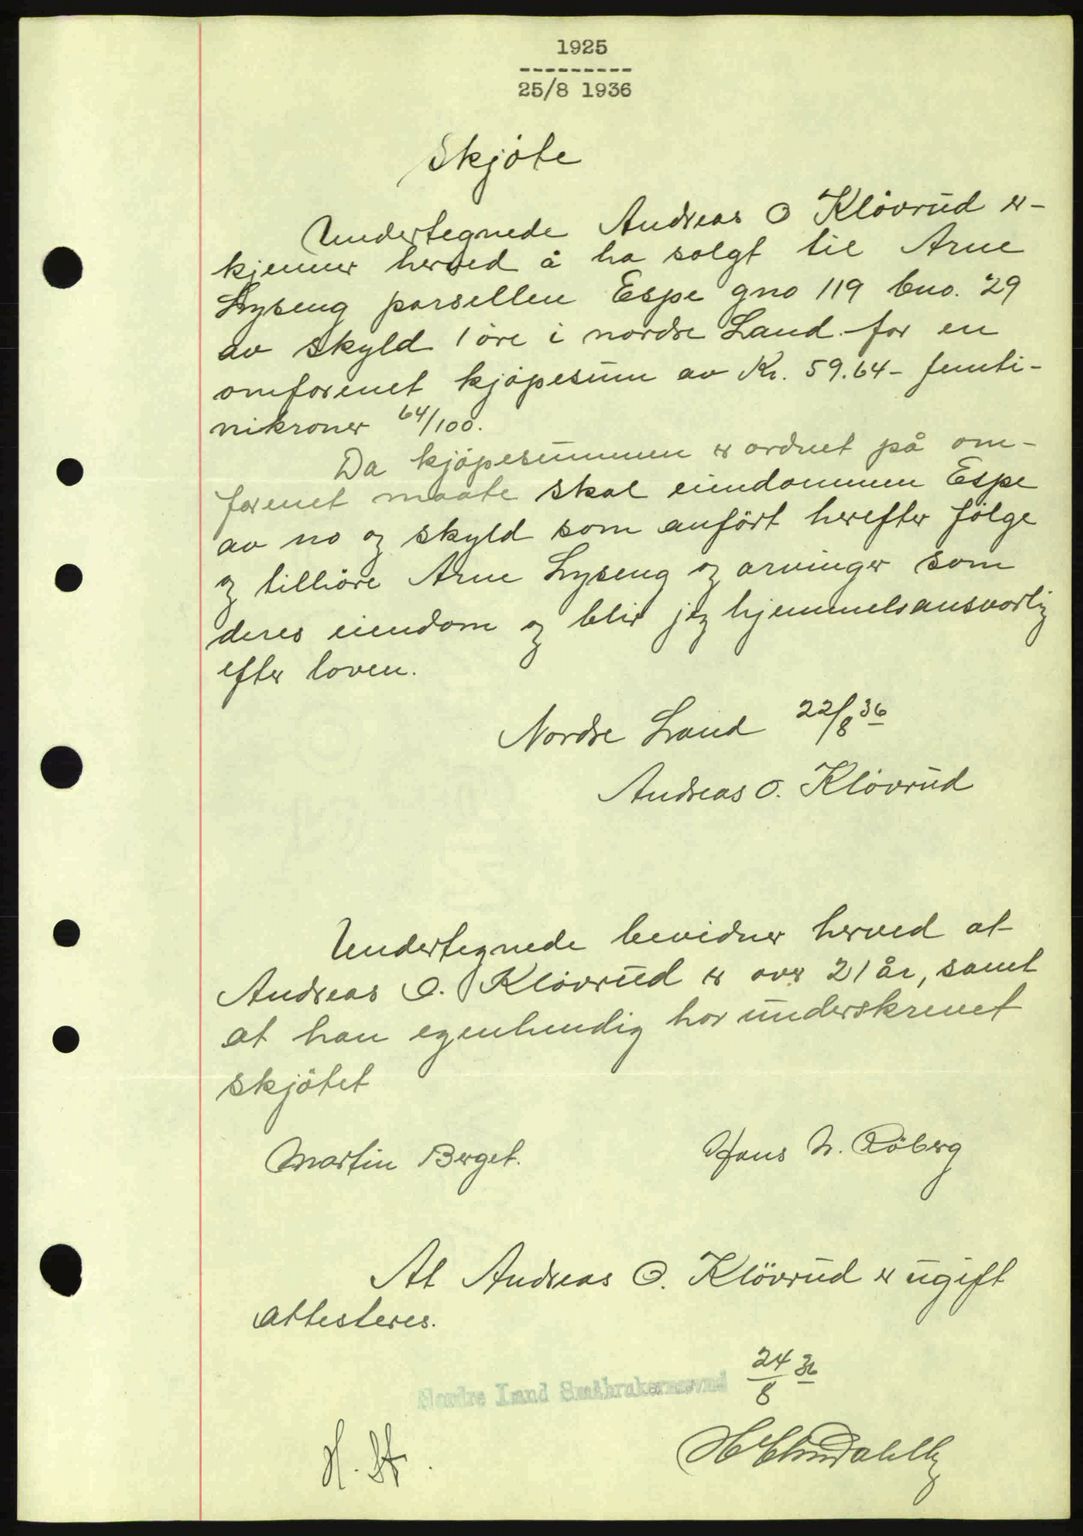 1925
25/8 1936
Skjöte
Undertegnede Andreas O Klövrud er-
kjenner herved å ha solgt til Arne
Lyseng parsellen Espe gno 119 bno. 29
av skyld 1 öre i nordre Land for en
omforenet kjöpesum av Kr. 59.64- femti-
nikroner 64/100.
Da kjöpesummen er ordnet på om-
forenet maate skal eiendommen Espe
av no og skyld som anfört herefter fölge
og tilhöre Arne Lyseng og arvinger som
deres eiendom og blir jeg hjemmelsansvarlig
efter loven.
Nordre Land 22/8 36
Andreas O. Klövrud
Undertegnede bevidner herved at
Andreas O. Klövrud er over 21 år, samt
at han egenhendig har underskrevet
skjötet
Martin Berget.
Hans N. Röberg
At Andreas O. Klövrud er ugift
attesteres.
24/8 36
Nordre Land
H. St.